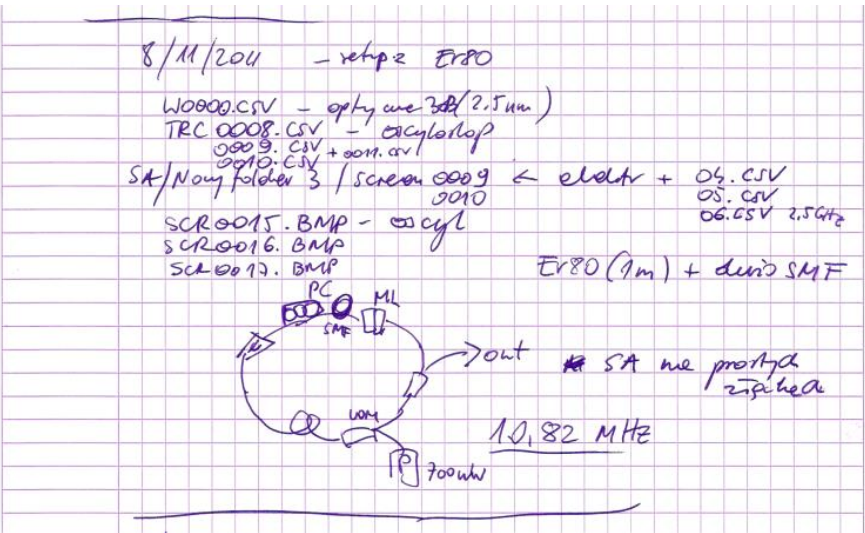 8/11/2011 - setup z Er80
W0000.CSV - optyczne 3dB (2.5nm)
TRC 0008.CSV - oscyloskop
0009.CSV
0010.CSV + 0011.CSV
SA/Nowy folder 3 / screen 0009 ← elektr + 04.CSV
0010 05.CSV
06.CSV 2,5GHz
SCR0015.BMP - oscyl
SCR0016.BMP
SCR0017.BMP
Er80 (1m) + dużo SMF
PC
ML
SMF
out
SA na prostych
złączkach
WDM
10,82 MHz
P 700mW